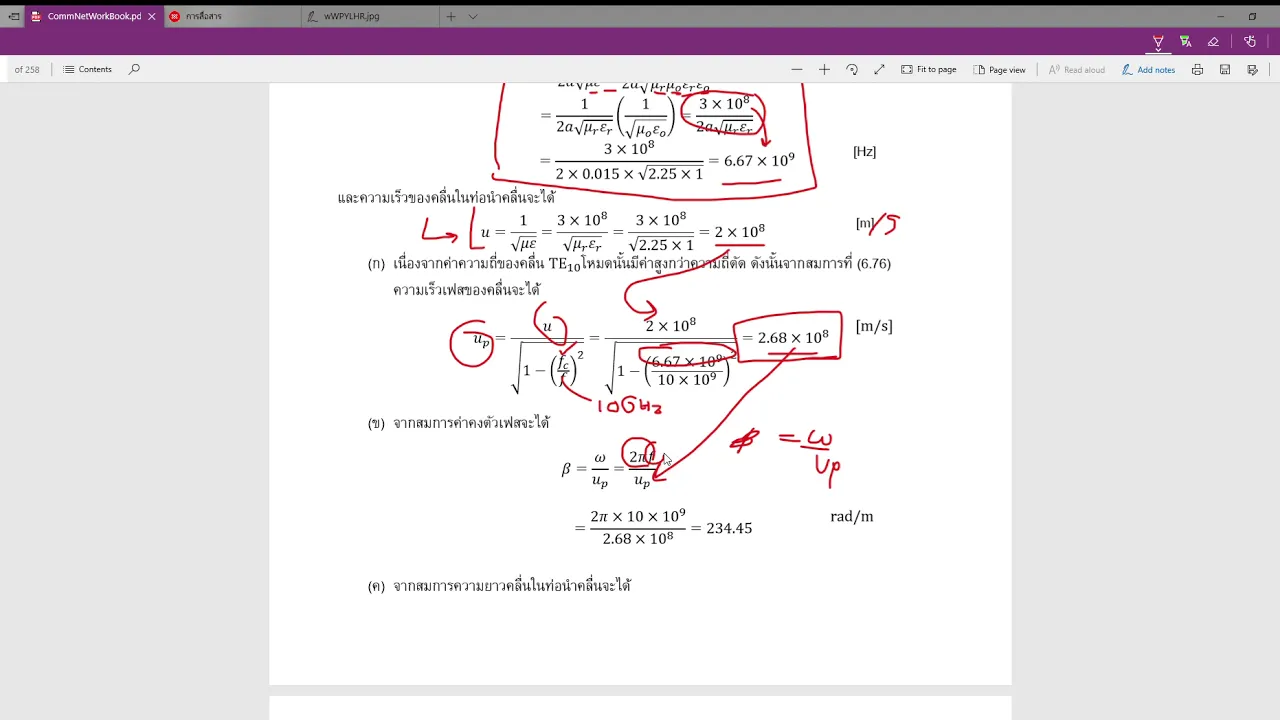 CommNetWorkBook.pd
การสื่อสาร
wWPYLHR.jpg
of 258
Contents
Fit to page
Page view
Read aloud
Add notes
2a√με 2a√μrμoεrεo
= 1/(2a√μrεr) (1/√μoεo) = 3 × 10⁸/(2a√μrεr)
= 3 × 10⁸/(2 × 0.015 × √2.25 × 1) = 6.67 × 10⁹ [Hz]
และความเร็วของคลื่นในท่อนำคลื่นจะได้
u = 1/√με = 3 × 10⁸/√μrεr = 3 × 10⁸/√2.25 × 1 = 2 × 10⁸ [m] /s
(ก) เนื่องจากค่าความถี่ของคลื่น TE₁₀โหมดนั้นมีค่าสูงกว่าความถี่ตัด ดังนั้นจากสมการที่ (6.76)
ความเร็วเฟสของคลื่นจะได้
up = u/√(1 − (fc/f)²) = 2 × 10⁸/√(1 − (6.67 × 10⁸/10 × 10⁹)²) = 2.68 × 10⁸ [m/s]
10GHz
(ข) จากสมการค่าคงตัวเฟสจะได้
β = ω/up
β = ω/up = 2πf/up
= 2π × 10 × 10⁹/2.68 × 10⁸ = 234.45 rad/m
(ค) จากสมการความยาวคลื่นในท่อนำคลื่นจะได้